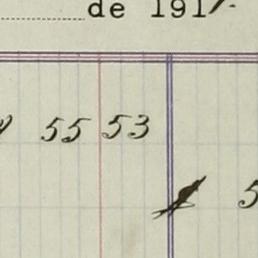 de 191
55 53
5